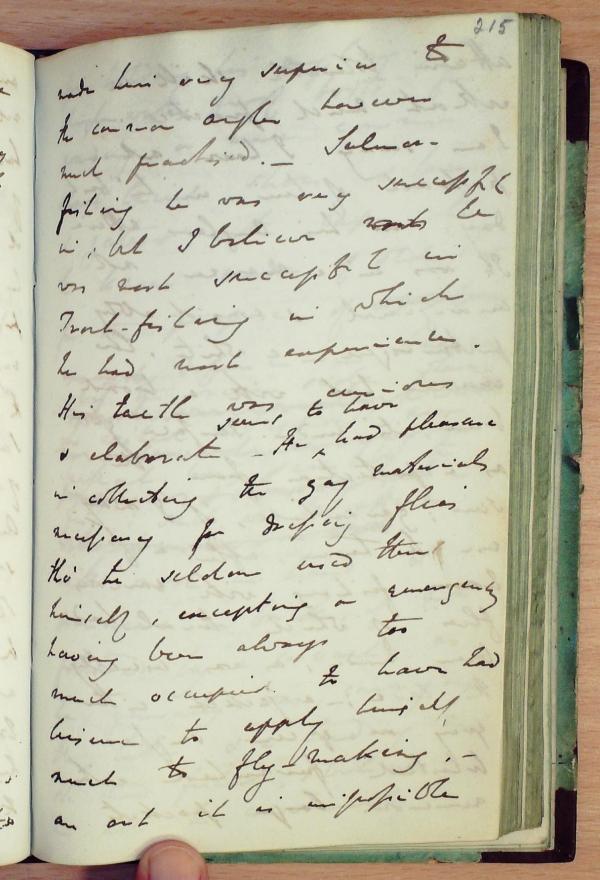 215
made him very superior to
the common angler however
much practised. — Salmon-
fishing he was very successful
in, but I believe he
was most successful in
Trout-fishing in which
he had most experience.
His tackle was curious
seems to have
& elaborate – He had pleasure
in collecting the gay materials
necessary for dressing flies
tho' he seldom used them
himself, excepting on emergency
having been always too
much occupied to have had
leisure to apply himself
much to fly-making. –
an art it is impossible